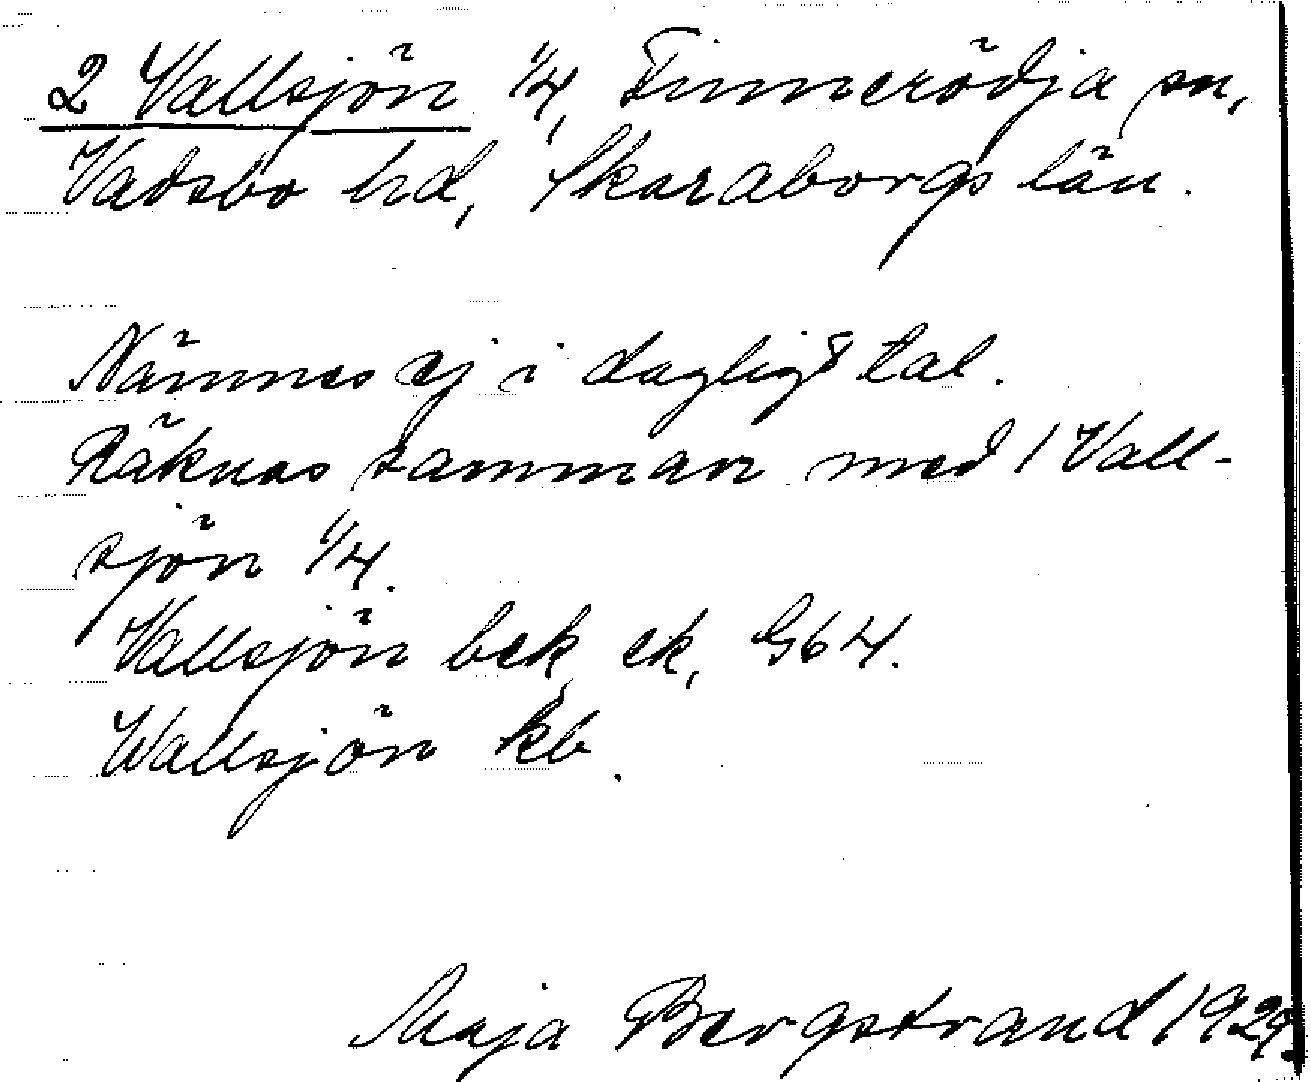 2 Vallsjön 1/4, Finnerödja sn,
Vadsbo hd, Skaraborgs län.
Nämnes ej i dagligt tal.
Räknas samman med 1 Vall-
sjön 1/4.
Vallsjön bek ek, G64.
Wallsjön kb.
Maja Bergstrand 1929.